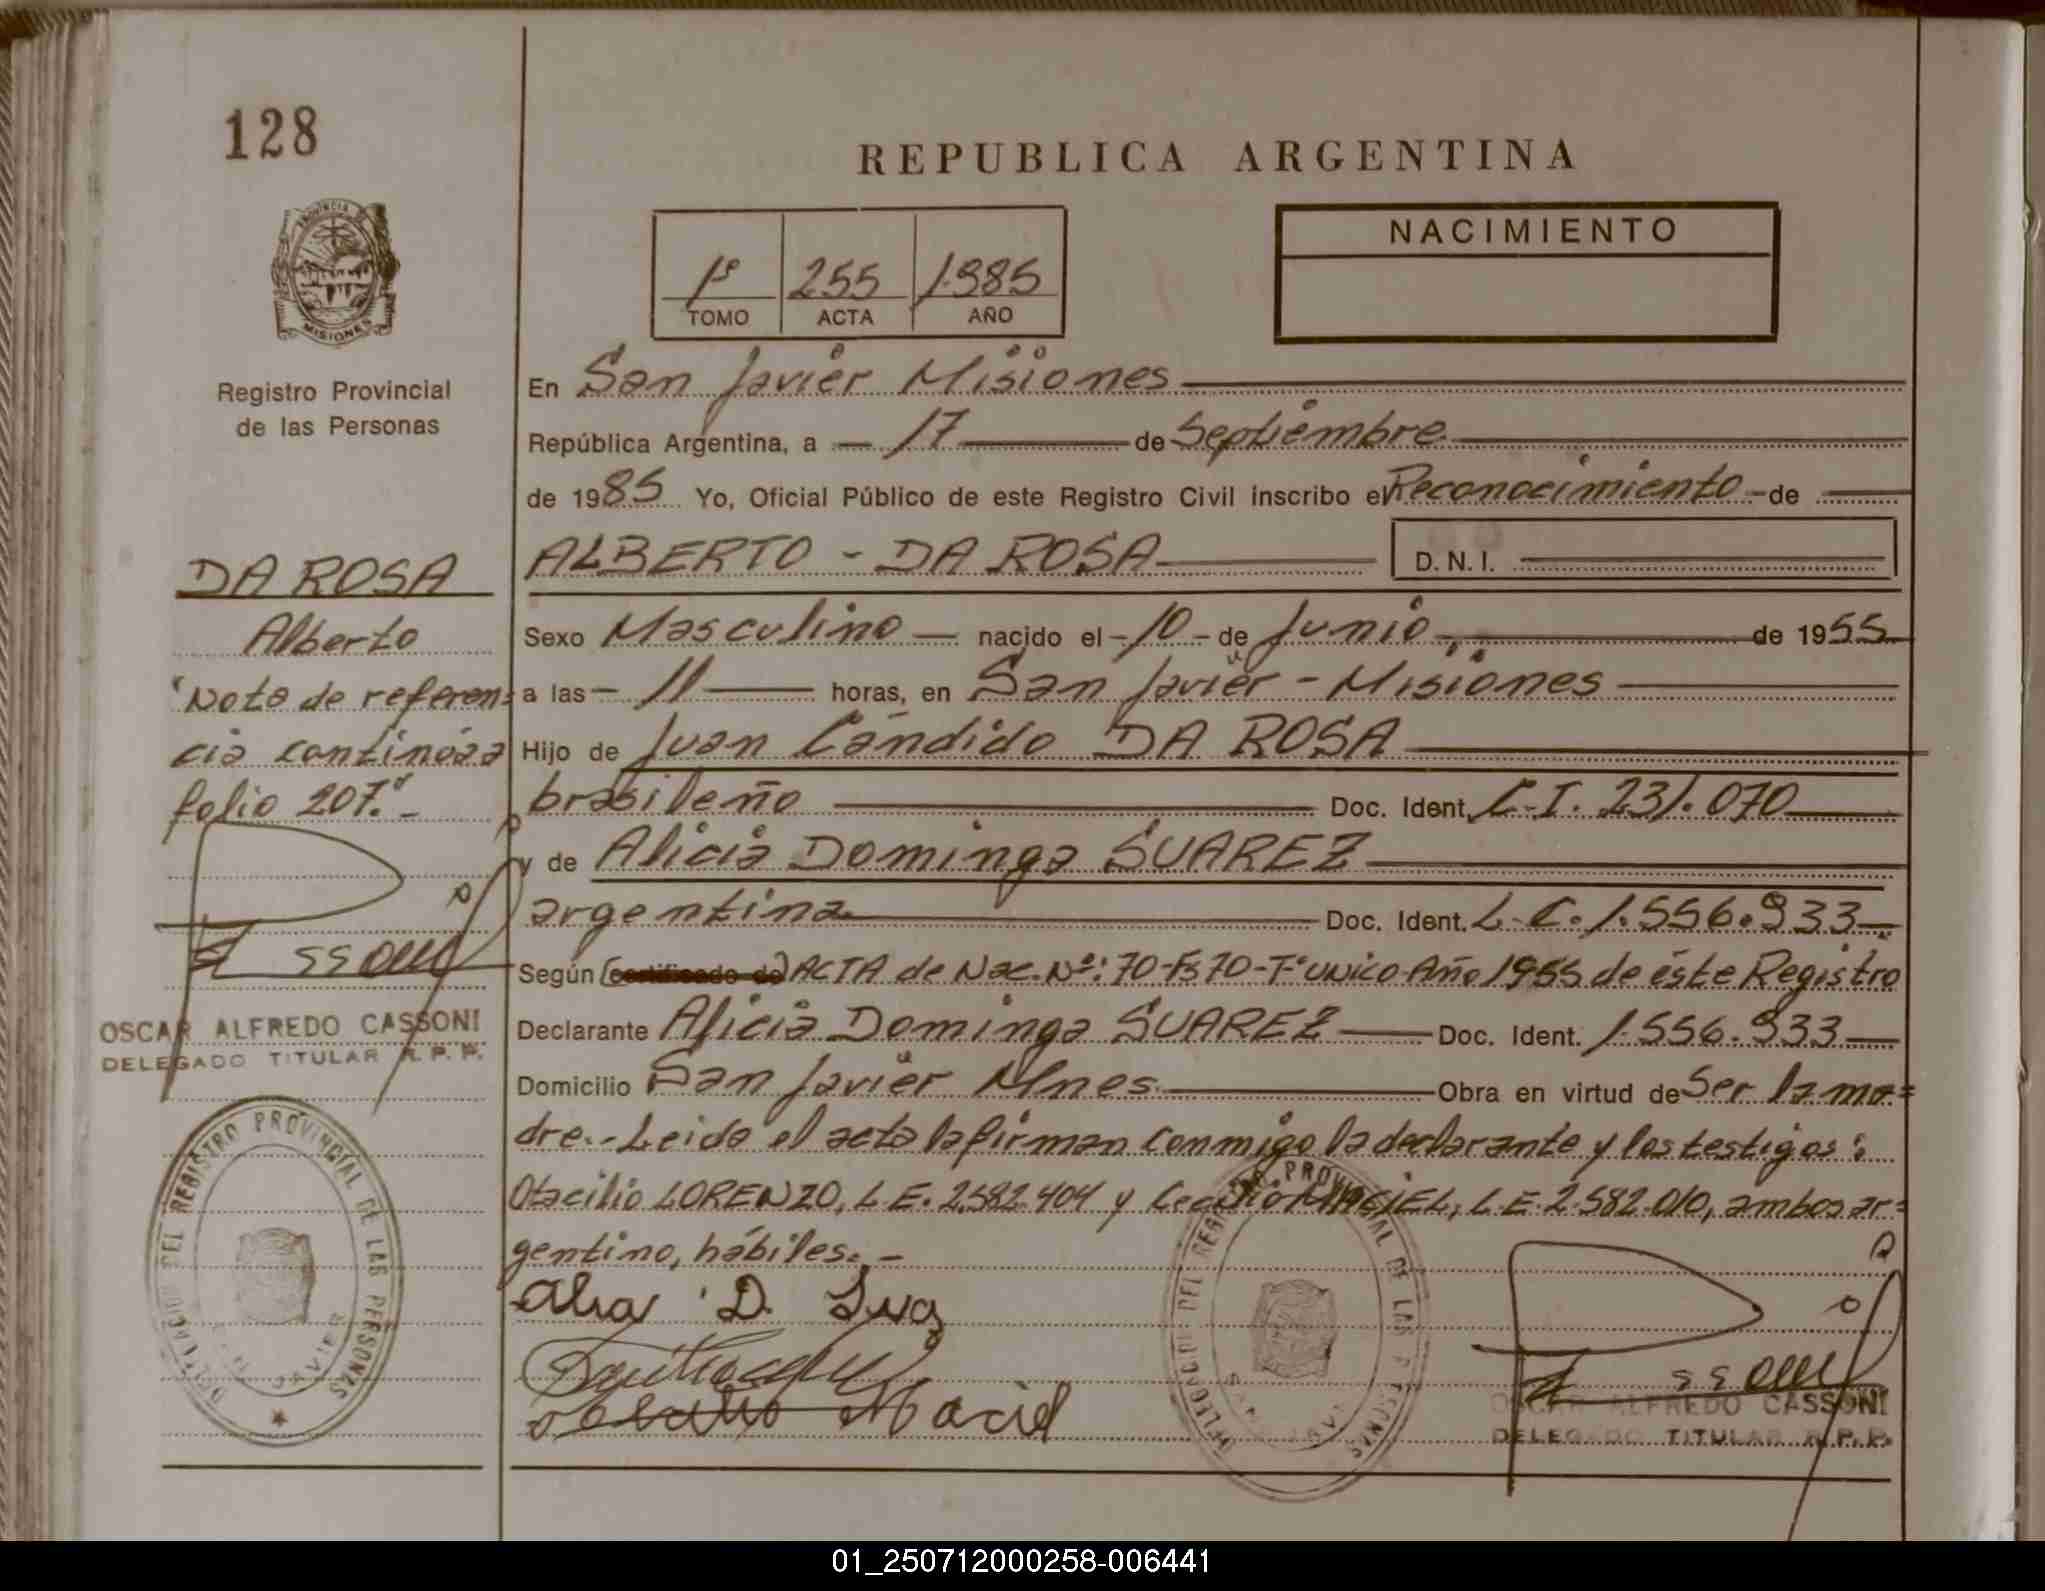 128
REPUBLICA ARGENTINA
NACIMIENTO
1º 255 1.985
TOMO ACTA AÑO
PROVINCIA DE
MISIONES
Registro Provincial
de las Personas
En San Javier Misiones
República Argentina, a — 17 — de Septiembre
de 1985 Yo, Oficial Público de este Registro Civil inscribo el Reconocimiento - de
ALBERTO - DA ROSA D.N.I.
Sexo Masculino — nacido el - 10 - de Junio de 1955
a las — 11 — horas, en San Javier - Misiones
Hijo de Juan Cándido DA ROSA
brasileño Doc. Ident. C.I. 231.070
y de Alicia Dominga SUAREZ
argentina Doc. Ident. L.C. 1.556.933
Según (certificado de) ACTA de Nac. Nº: 70-Fs 70-Tº unico-Año 1955 de éste Registro
Declarante Alicia Dominga SUAREZ Doc. Ident. 1.556.933
Domicilio San Javier Mnes. Obra en virtud de Ser la ma=
dre.- Leida el acta la firman conmigo la declarante y los testigos:
Otacilio LORENZO, L.E. 2.582.404 y Cecilio MACIEL, L.E. 2.582.010, ambos ar=
gentino, hábiles.-
DA ROSA
Alberto
"Nota de referen=
cia continúa a
folio 207."-
OSCAR ALFREDO CASSONI
DELEGADO TITULAR R.P.P.
DELEGACION DEL REGISTRO PROVINCIAL DE LAS PERSONAS
SAN JAVIER
D. Maciel
DELEGACION DEL REGISTRO PROVINCIAL DE LAS PERSONAS
SAN JAVIER
OSCAR ALFREDO CASSONI
DELEGADO TITULAR R.P.P.
01_250712000258-006441